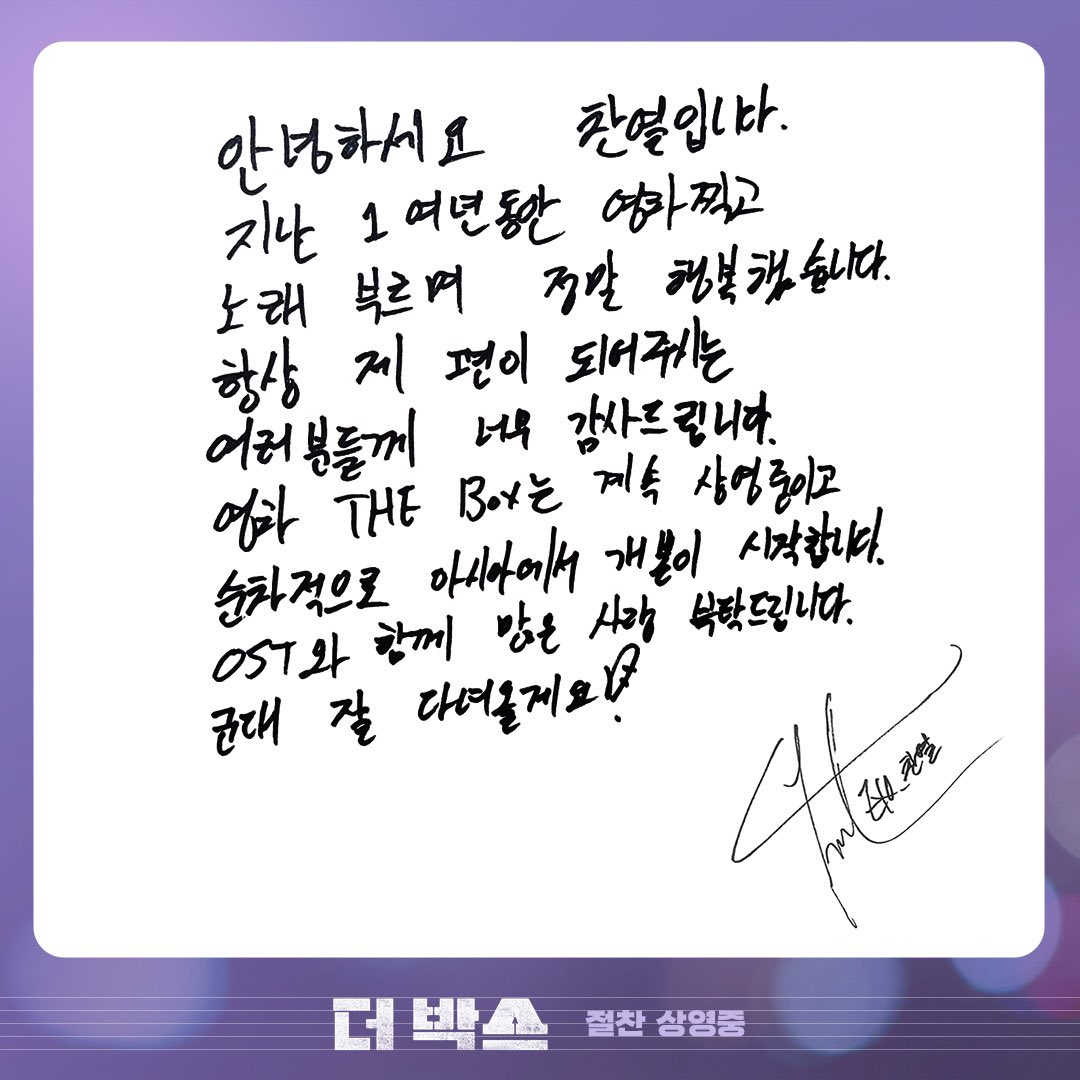 안녕하세요 찬열입니다.
지난 1여년동안 영화찍고
노래 부르며 정말 행복했습니다.
항상 제 편이 되어주시는
여러분들께 너무 감사드립니다.
영화 THE Box는 계속 상영중이고
순차적으로 아시아에서 개봉이 시작합니다.
OST와 함께 많은 사랑 부탁드립니다.
군대 잘 다녀올게요!
찬열
더 박스 절찬 상영중